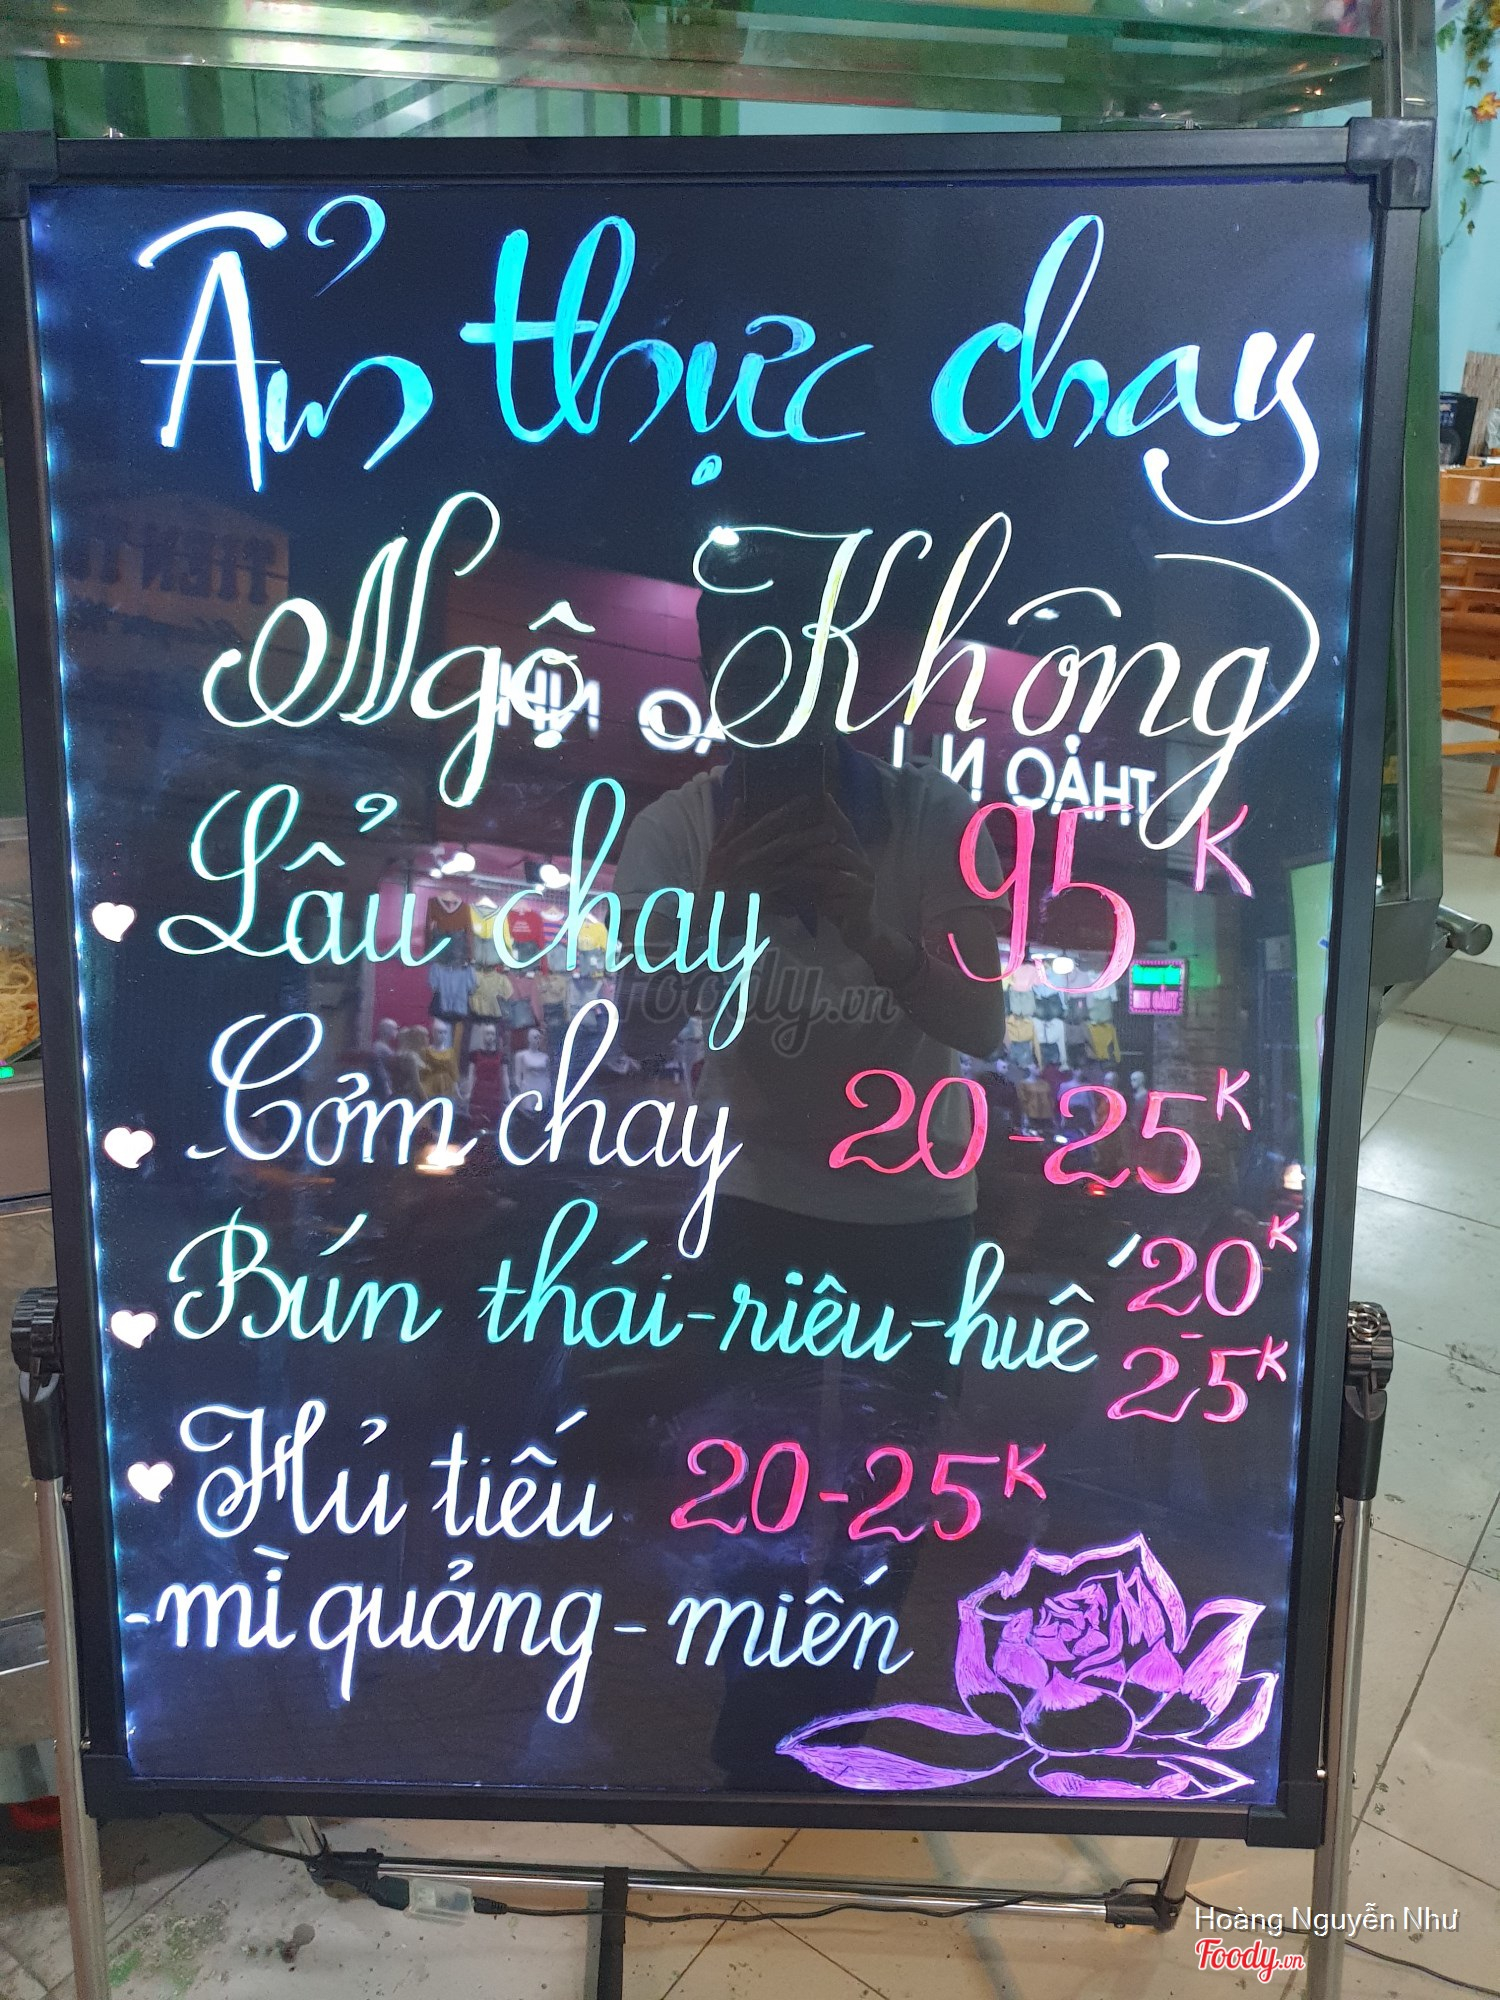 Ẩm thực chay
Ngộ Không
Lẩu chay 95K
Cơm chay 20-25K
Bún thái-riêu-huế 20K
- 25K
Hủ tiếu 20-25K
-mì quảng-miến
THẢO NHI
Foody.vn
Hoàng Nguyễn Như
Foody.vn